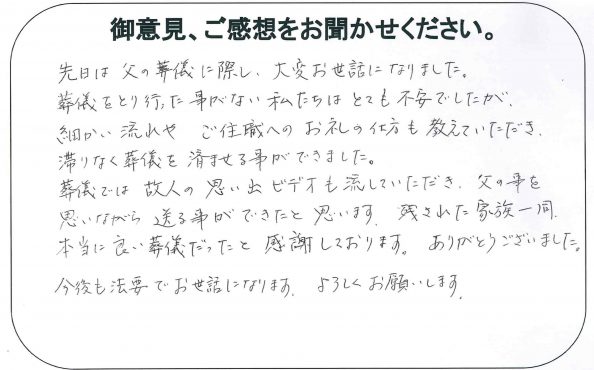 御意見、ご感想をお聞かせください。
先日は 父の葬儀に際し、大変お世話になりました。
葬儀をとり行った事がない 私たちは とても 不安でしたが、
細かい 流れや ご住職への お礼の仕方も 教えていただき、
滞りなく 葬儀を 済ませる事ができました。
葬儀では 故人の 思い出 ビデオも 流していただき、父の事を
思いながら 送る事ができたと 思います。残された 家族一同、
本当に 良い 葬儀だったと 感謝しております。ありがとうございました。
今後も 法要で お世話になります。よろしく お願いします。